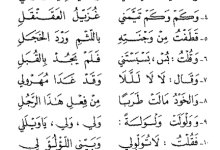 ٤- وَكَمْ وَكَمْ تَيَّمَنِي غُزَيِّلٌ الْعَقَنْقَلِ
٥- قَطَفْتُ مِنْ وَجْنَتِهِ بِاللَّثْمِ وَرْدَ الْخَجَلِ
٦- وَقُلْتُ : بَسْ ، بَسْبَسْتَنِي فَلَمْ يَجُدْ بِالْقُبَلِ
٧- وَقَالَ : لَا لَا لَلَلَا وَقَدْ غَدَا مُهَرْوِلِ
٨- وَالْخُودُ مَالَتْ طَرَبًا مِنْ فِعْلِ هَذَا الرَّجُلِ
٩- وَوَلْوَلَتْ وَلْوَلَةً : وَلِي ، وَلِي ، يَاوَيْلَلِي
١٠- فَقُلْتُ : لَا تُوَلْوِلِي وَبَيِّنِي اللُّؤْلُؤَ لِي